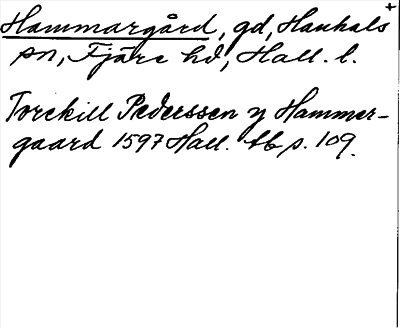 Hammargård, gd, Hanhals
sn, Fjäre hd, Hall. l.
Torckill Pederssen y Hammer-
gaard 1597 Hall. tb s. 109.